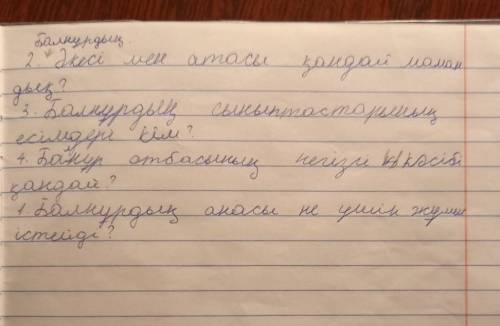 Балнурдың
2. Әкесі мен атасы қандай маман
дық?
3. Балнұрдың сыныптастарының
есімдері кім?
4. Банур отбасының негізгі кәсібі
қандай?
1. Балнұрдың анасы не үшін жұмыс
істейді?